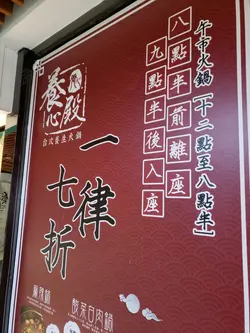 午市火鍋【十二點至八點半】
八點半前離座
九點半後入座
養心殿
台式養生火鍋
一律
七折
麻辣鍋
酸菜白肉鍋